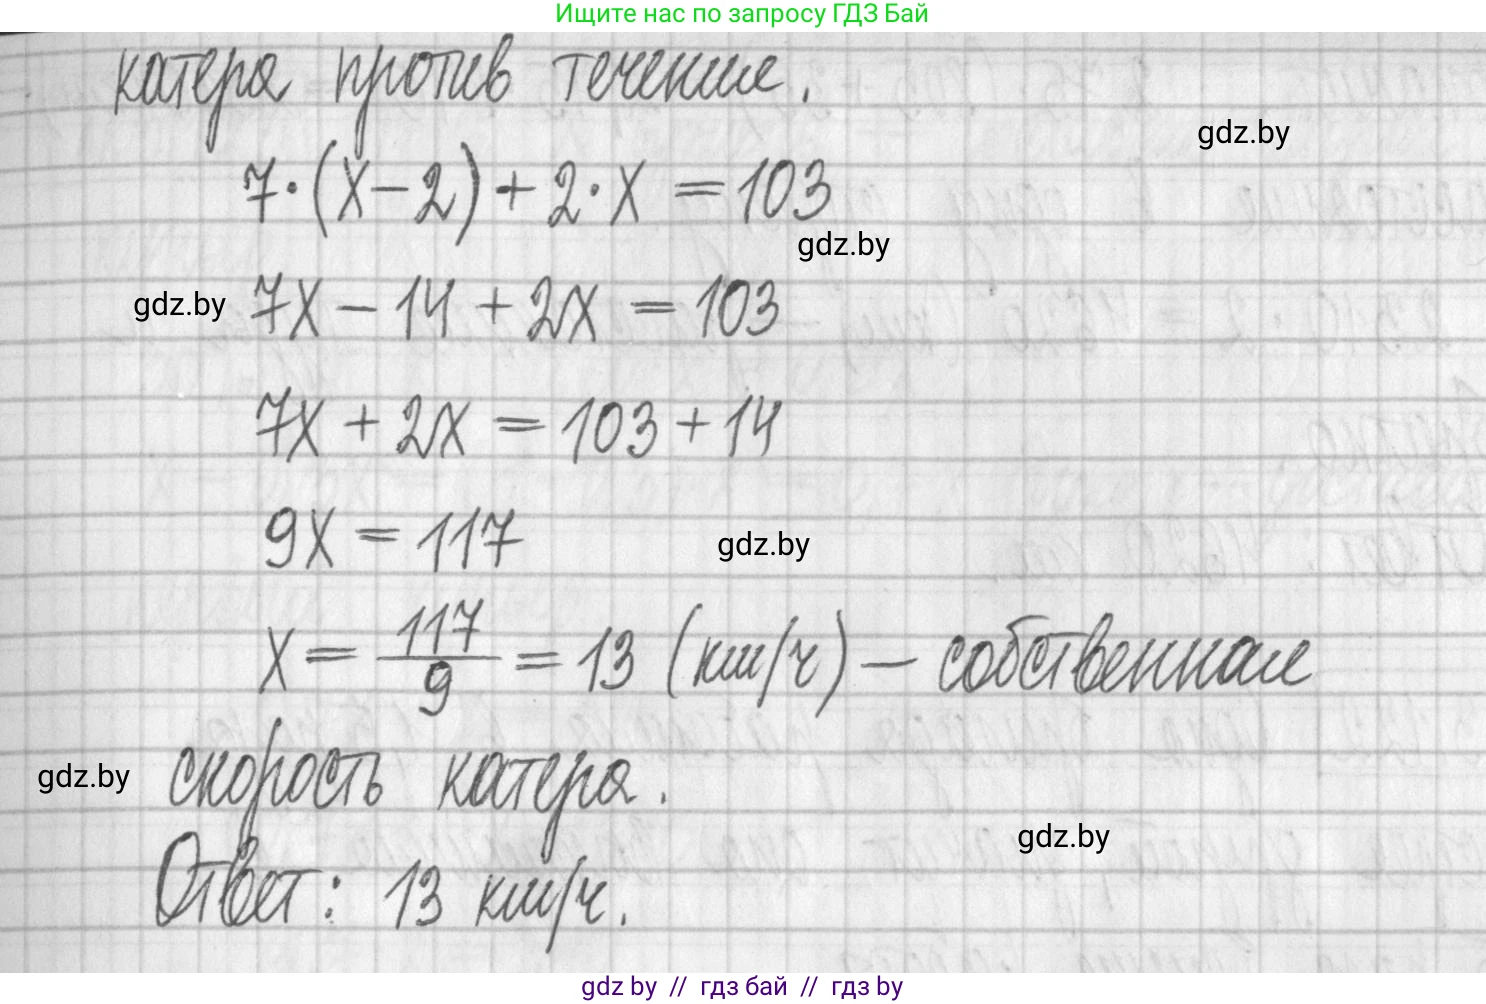 Ищите нас по запросу ГДЗ Бай
катера против течения.
gdz.by
7·(x-2)+2·x=103
gdz.by
gdz.by
7x-14+2x=103
7x+2x=103+14
9x=117
gdz.by
x=117/9=13 (км/ч) - собственная
gdz.by
скорость катера.
gdz.by
Ответ: 13 км/ч.
gdz.by // гдз бай // гдз by